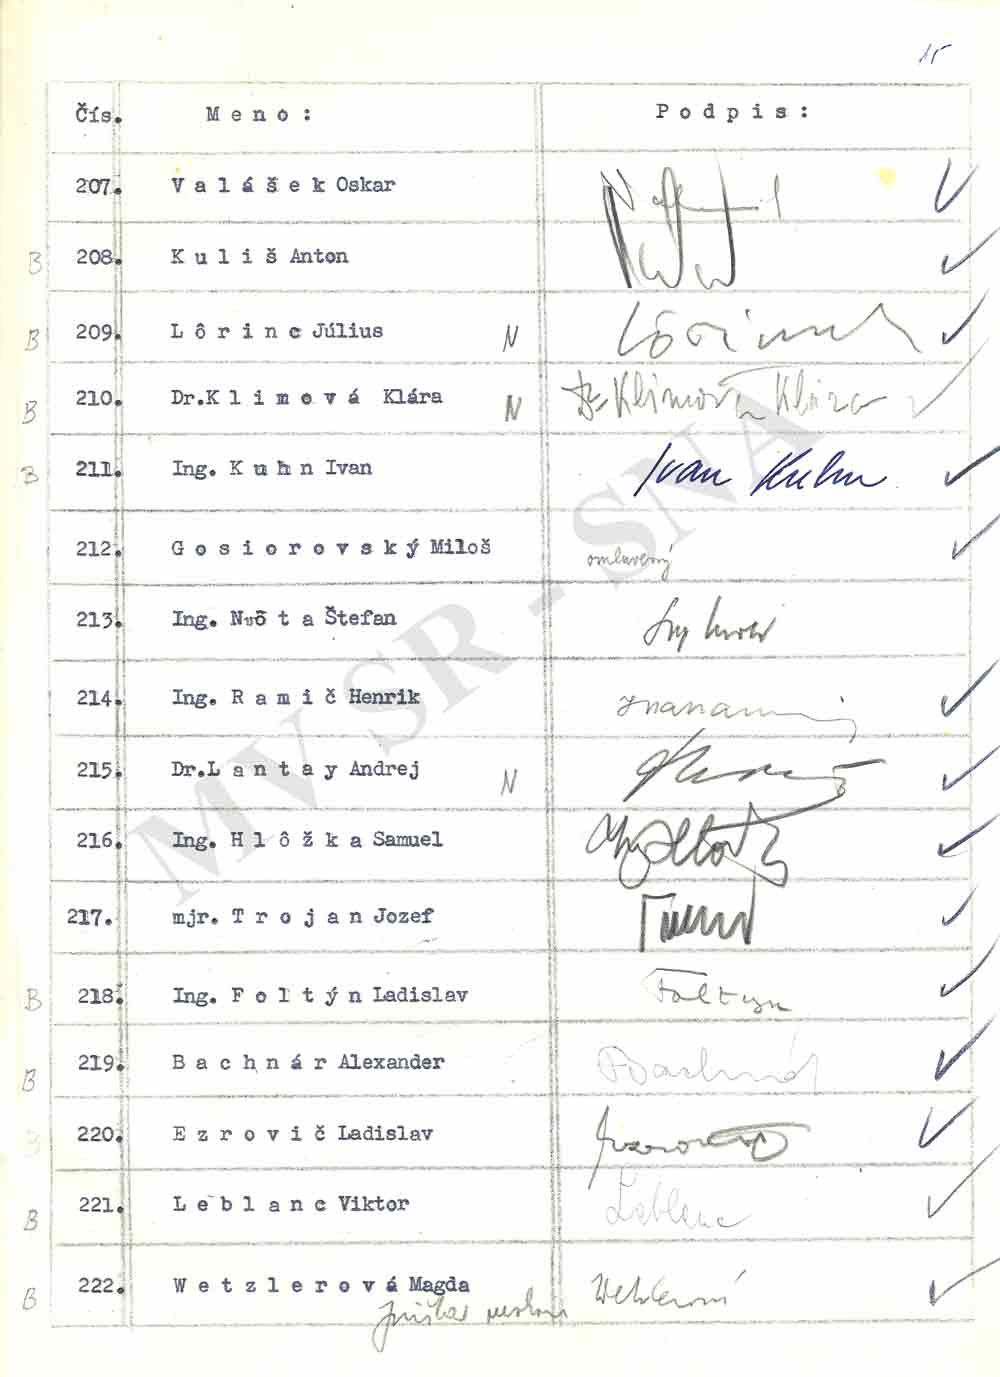 15
Čís. Meno: Podpis:
207. Valášek Oskar
B 208. Kuliš Anton
B 209. Lôrinc Július N Lörinc
B 210. Dr.Klimová Klára N Dr Klimová Klára
B 211. Ing. Kuhn Ivan Ivan Kuhn
212. Gosiorovský Miloš omluvený
213. Ing. Nvôta Štefan
214. Ing. Ramič Henrik
215. Dr.Lantay Andrej N
216. Ing. Hlôžka Samuel
217. mjr. Trojan Jozef
B 218. Ing. Foltýn Ladislav Foltyn
B 219. Bachnár Alexander Bachnár
B 220. Ezrovič Ladislav
B 221. Leblanc Viktor Leblanc
B 222. Wetzlerová Magda Wetzlerová
MV SR - SNA